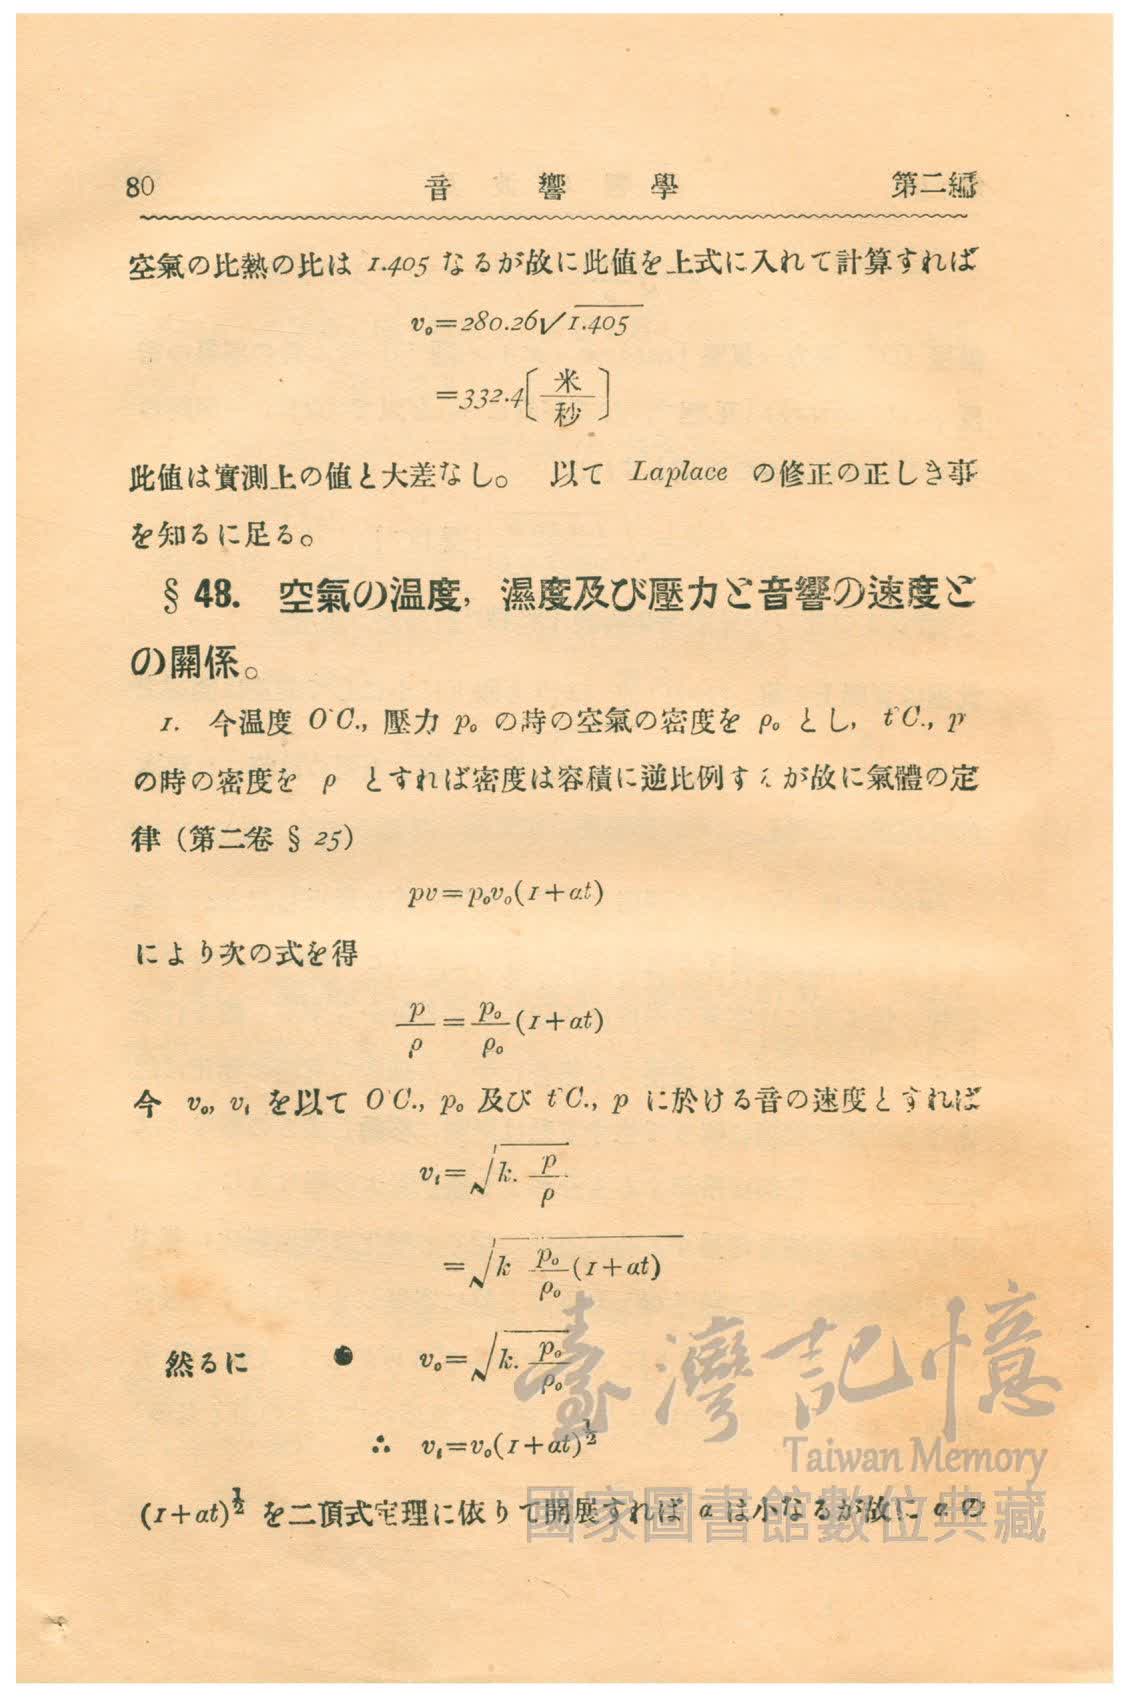 80　音　響　學　第二編
空氣の比熱の比は 1.405 なるが故に此値を上式に入れて計算すれば
v₀=280.26√1.405
=332.4[米/秒]
此値は實測上の値と大差なし。 以て Laplace の修正の正しき事
を知るに足る。
§ 48. 空氣の温度, 濕度及び壓力と音響の速度と
の關係。
1. 今温度 0°C., 壓力 p₀ の時の空氣の密度を ρ₀ とし, t°C., p
の時の密度を ρ とすれば密度は容積に逆比例するが故に氣體の定
律 (第二卷 § 25)
pv=p₀v₀(1+αt)
により次の式を得
p/ρ=p₀/ρ₀(1+αt)
今 v₀, vₜ を以て 0°C., p₀ 及び t°C., p に於ける音の速度とすれば
vₜ=√k. p/ρ
=√k p₀/ρ₀(1+αt)
然るに v₀=√k. p₀/ρ₀
∴ vₜ=v₀(1+αt)^½
(1+αt)^½ を二項式定理に依りて開展すれば α は小なるが故に α の
臺灣記憶
Taiwan Memory
國家圖書館數位典藏